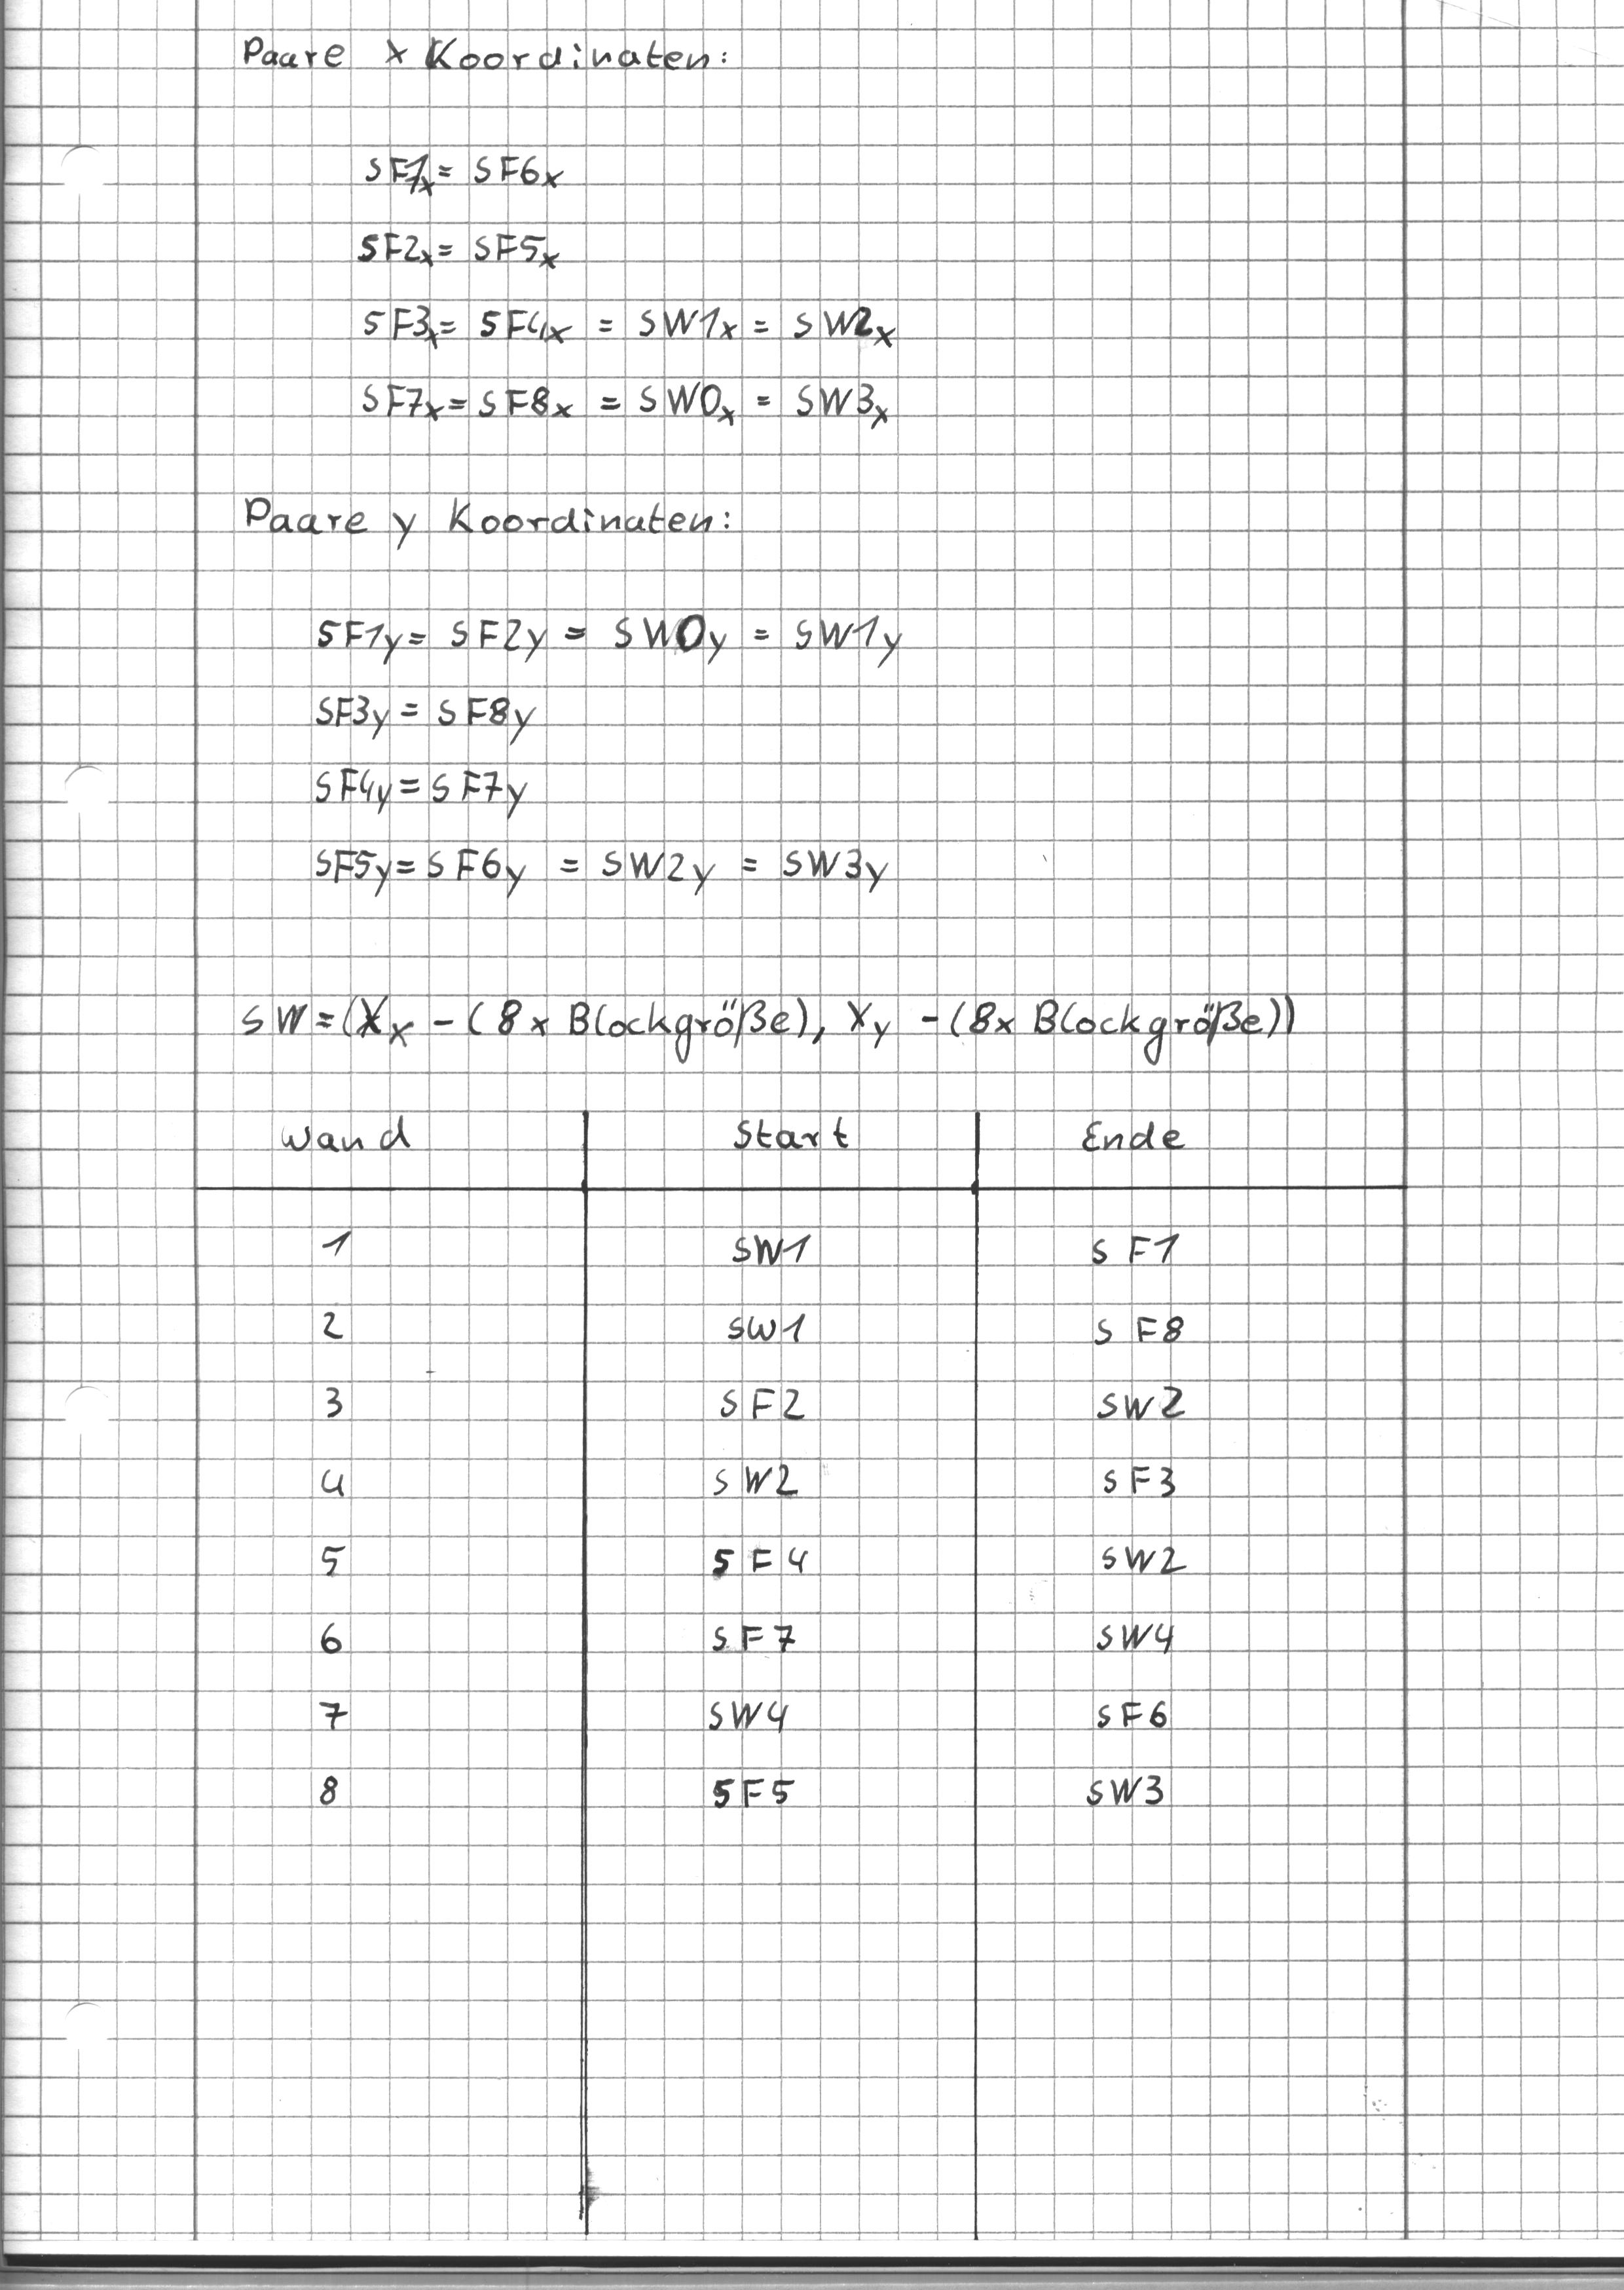 Paare x Koordinaten:
SF1x = SF6x
SF2x = SF5x
SF3x = SF4x = SW1x = SW2x
SF7x = SF8x = SW0x = SW3x
Paare y Koordinaten:
SF1y = SF2y = SW0y = SW1y
SF3y = SF8y
SF4y = SF7y
SF5y = SF6y = SW2y = SW3y
SW = (Xx - (8 x Blockgröße), Xy - (8x Blockgröße))
Wand Start Ende
1 SW1 SF1
2 SW1 SF8
3 SF2 SW2
4 SW2 SF3
5 SF4 SW2
6 SF7 SW4
7 SW4 SF6
8 SF5 SW3